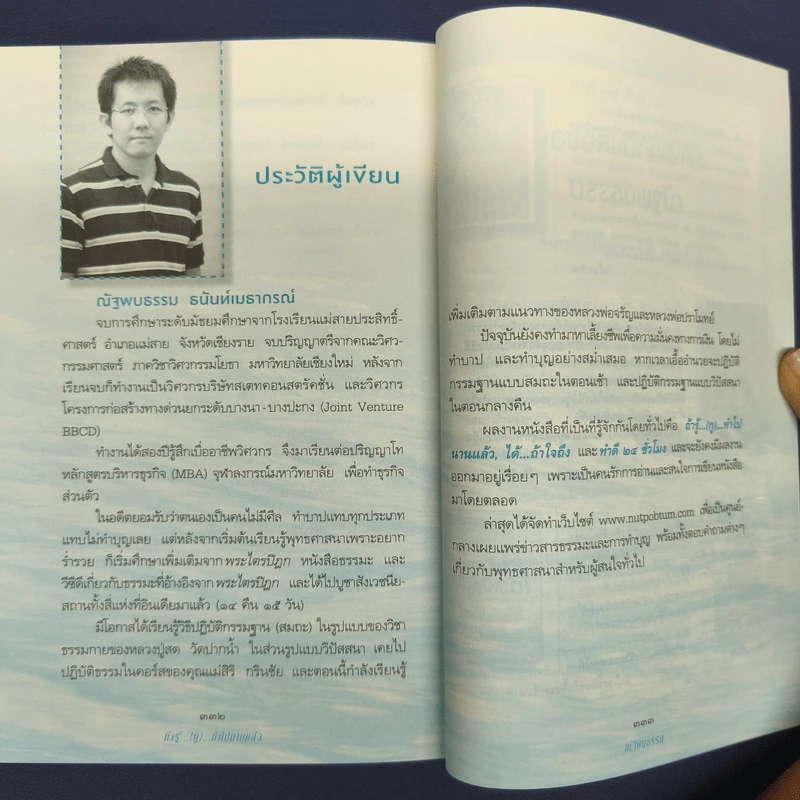 ประวัติผู้เขียน
ณัฐพบธรรม ธนันท์เมธากรณ์
จบการศึกษาระดับมัธยมศึกษาจากโรงเรียนแม่สายประสิทธิ์-
ศาสตร์ อำเภอแม่สาย จังหวัดเชียงราย จบปริญญาตรีจากคณะวิศว-
กรรมศาสตร์ ภาควิชาวิศวกรรมโยธา มหาวิทยาลัยเชียงใหม่ หลังจาก
เรียนจบก็ทำงานเป็นวิศวกรบริษัทสเตทคอนสตรัคชั่น และวิศวกร
โครงการก่อสร้างทางด่วนยกระดับบางนา - บางปะกง (Joint Venture
BBCD)
ทำงานได้สองปีรู้สึกเบื่ออาชีพวิศวกร จึงมาเรียนต่อปริญญาโท
หลักสูตรบริหารธุรกิจ (MBA) จุฬาลงกรณ์มหาวิทยาลัย เพื่อทำธุรกิจ
ส่วนตัว
ในอดีตยอมรับว่าตนเองเป็นคนไม่มีศีล ทำบาปแทบทุกประเภท
แทบไม่ทำบุญเลย แต่หลังจากเริ่มต้นเรียนรู้พุทธศาสนาเพราะอยาก
ร่ำรวย ก็เริ่มศึกษาเพิ่มเติมจาก พระไตรปิฎก หนังสือธรรมะ และ
วีซีดีเกี่ยวกับธรรมะที่อ้างอิงจาก พระไตรปิฎก และได้ไปบูชาสังเวชนีย-
สถานทั้งสี่แห่งที่อินเดียมาแล้ว (๑๔ คืน ๑๕ วัน)
มีโอกาสได้เรียนรู้วิธีปฏิบัติกรรมฐาน (สมถะ) ในรูปแบบของวิชา
ธรรมกายของหลวงปู่สด วัดปากน้ำ ในส่วนรูปแบบวิปัสสนา เคยไป
ปฏิบัติธรรมในคอร์สของคุณแม่สิริ กรินชัย และตอนนี้กำลังเรียนรู้
๓๓๒
ถ้ารู้...(กู)...ทำไปนานแล้ว
เพิ่มเติมตามแนวทางของหลวงพ่อจรัญและหลวงพ่อปราโมทย์
ปัจจุบันยังคงทำมาหาเลี้ยงชีพเพื่อความมั่นคงทางการเงิน โดยไม่
ทำบาป และทำบุญอย่างสม่ำเสมอ หากเวลาเอื้ออำนวยจะปฏิบัติ
กรรมฐานแบบสมถะในตอนเช้า และปฏิบัติกรรมฐานแบบวิปัสสนา
ในตอนกลางคืน
ผลงานหนังสือที่เป็นที่รู้จักกันโดยทั่วไปคือ ถ้ารู้...(กู)...ทำไป
นานแล้ว, ได้...ถ้าใจถึง และ ทำดี ๒๔ ชั่วโมง และจะยังคงมีผลงาน
ออกมาอยู่เรื่อยๆ เพราะเป็นคนรักการอ่านและสนใจการเขียนหนังสือ
มาโดยตลอด
ล่าสุดได้จัดทำเว็บไซต์ www.nutpobtum.com เพื่อเป็นศูนย์-
กลางเผยแพร่ข่าวสารธรรมะและการทำบุญ พร้อมทั้งตอบคำถามต่างๆ
เกี่ยวกับพุทธศาสนาสำหรับผู้สนใจทั่วไป
๓๓๓
ณัฐพบธรรม